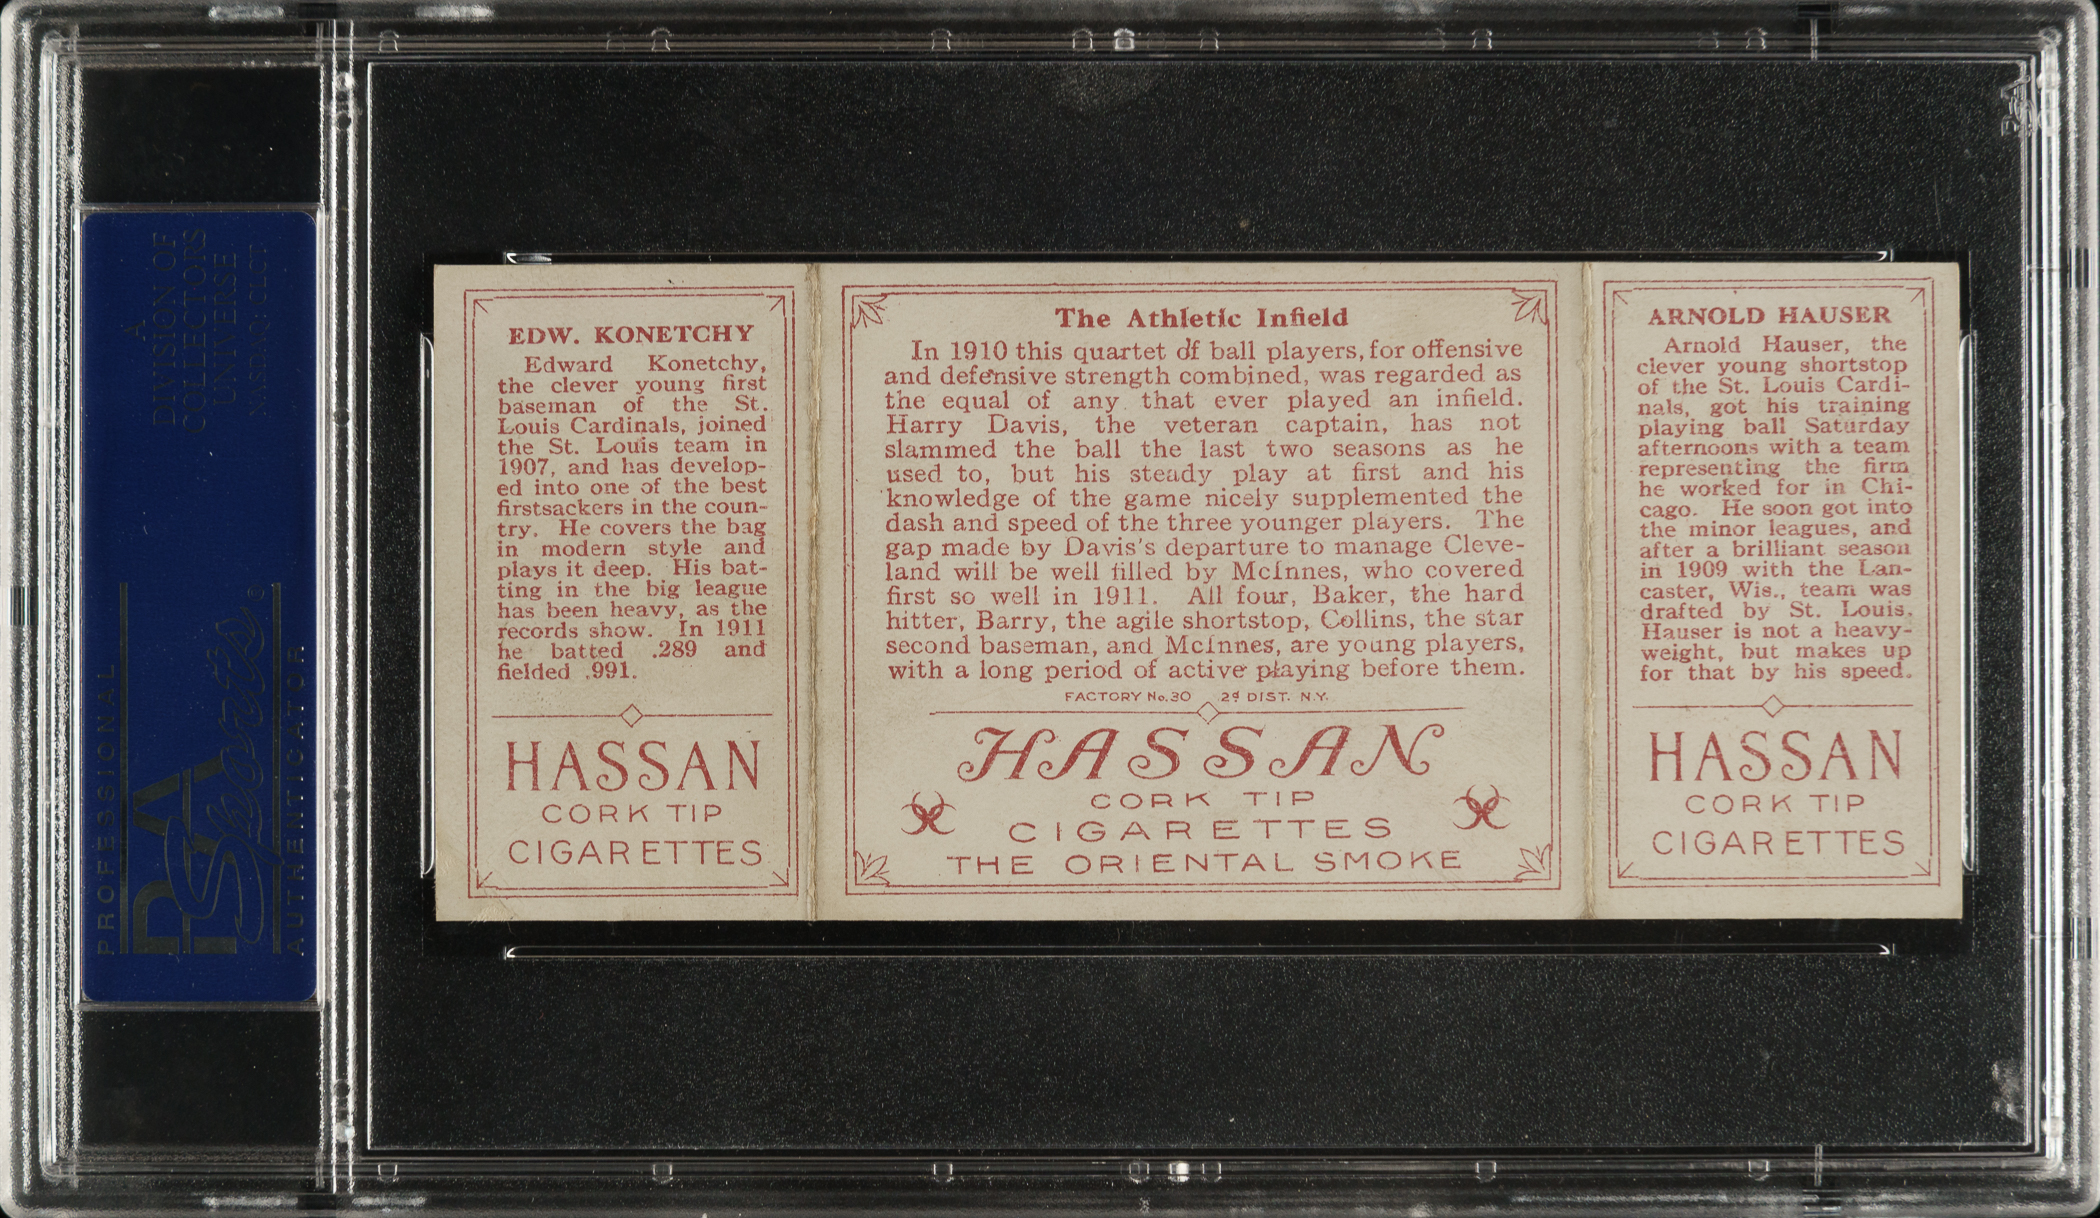 A
DIVISION OF
COLLECTORS
UNIVERSE
NASDAQ: CLCT
PROFESSIONAL
PSA
Sports
AUTHENTICATOR
EDW. KONETCHY
Edward Konetchy,
the clever young first
baseman of the St.
Louis Cardinals, joined
the St. Louis team in
1907, and has develop-
ed into one of the best
firstsackers in the coun-
try. He covers the bag
in modern style and
plays it deep. His bat-
ting in the big league
has been heavy, as the
records show. In 1911
he batted .289 and
fielded .991.
HASSAN
CORK TIP
CIGARETTES
The Athletic Infield
In 1910 this quartet of ball players, for offensive
and defensive strength combined, was regarded as
the equal of any that ever played an infield.
Harry Davis, the veteran captain, has not
slammed the ball the last two seasons as he
used to, but his steady play at first and his
knowledge of the game nicely supplemented the
dash and speed of the three younger players. The
gap made by Davis's departure to manage Cleve-
land will be well filled by McInnes, who covered
first so well in 1911. All four, Baker, the hard
hitter, Barry, the agile shortstop, Collins, the star
second baseman, and McInnes, are young players,
with a long period of active playing before them.
FACTORY No. 30 2d DIST. N.Y.
HASSAN
CORK TIP
CIGARETTES
THE ORIENTAL SMOKE
ARNOLD HAUSER
Arnold Hauser, the
clever young shortstop
of the St. Louis Cardi-
nals, got his training
playing ball Saturday
afternoons with a team
representing the firm
he worked for in Chi-
cago. He soon got into
the minor leagues, and
after a brilliant season
in 1909 with the Lan-
caster, Wis., team was
drafted by St. Louis.
Hauser is not a heavy-
weight, but makes up
for that by his speed.
HASSAN
CORK TIP
CIGARETTES